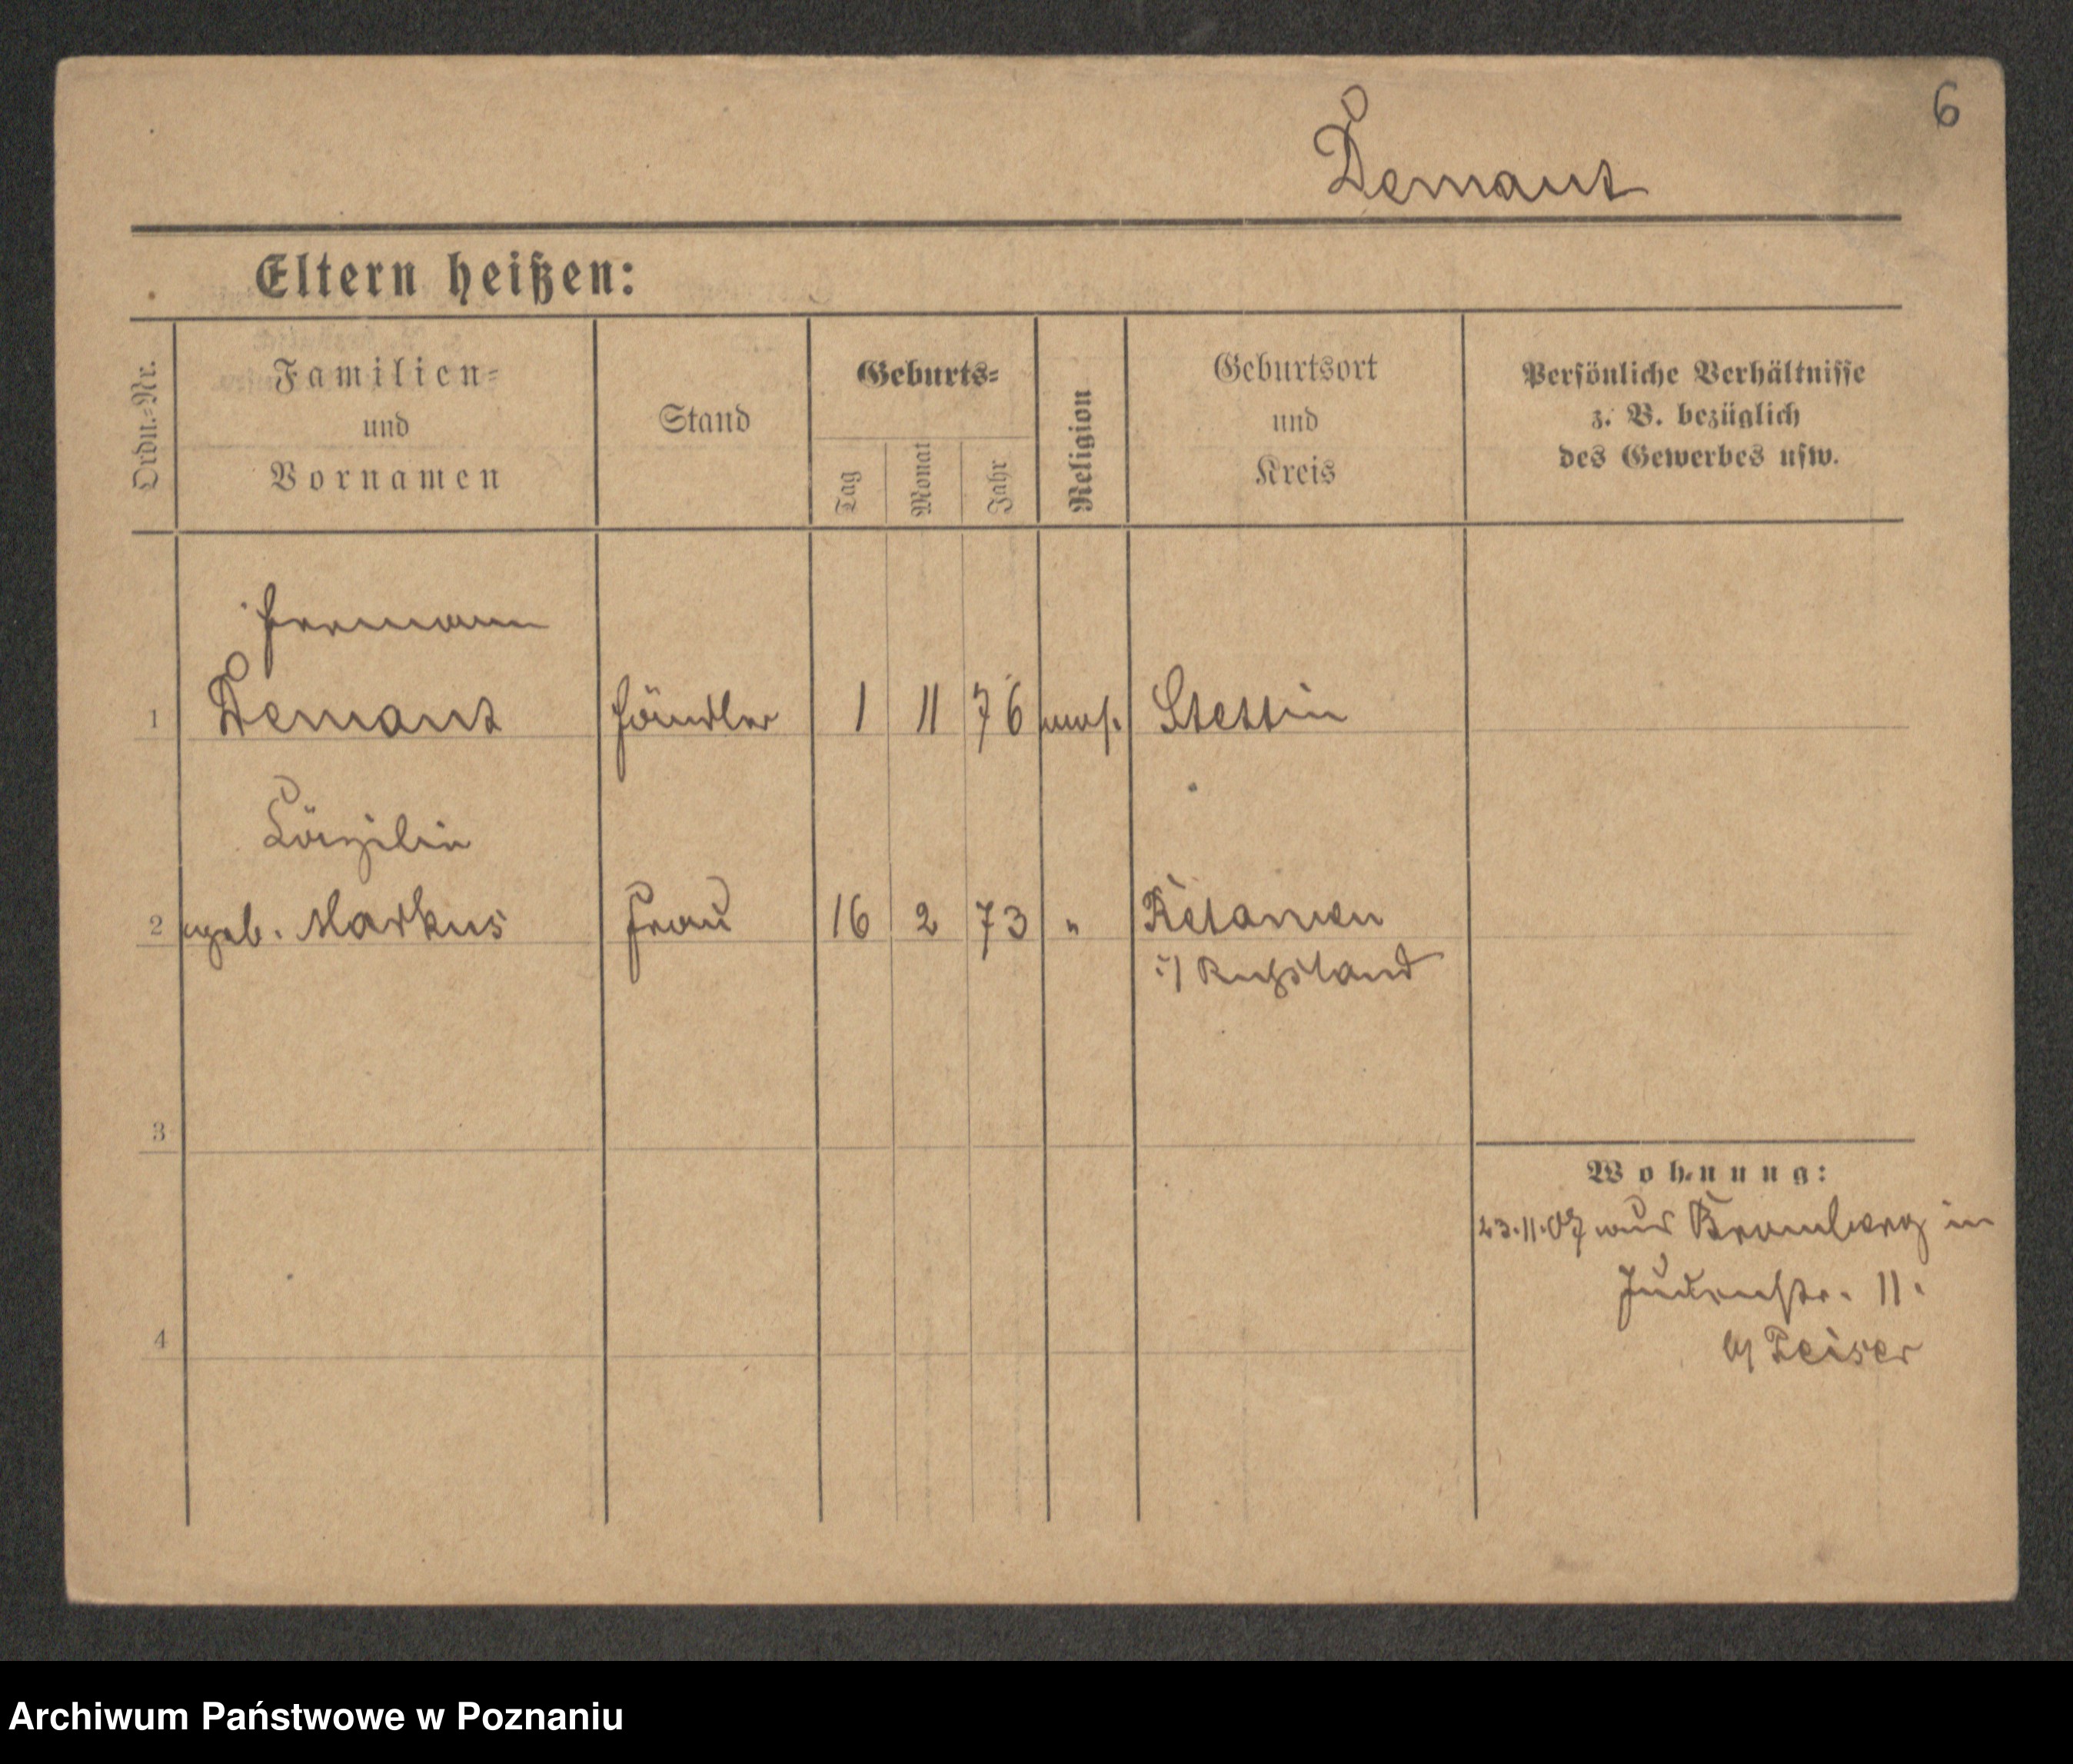 6
Demant
Eltern heißen:
Ordn.-Nr.
Familien-
und
Vornamen
Stand
Geburts-
Tag
Monat
Jahr
Religion
Geburtsort
und
Kreis
Persönliche Verhältnisse
z. B. bezüglich
des Gewerbes usw.
Hermann
1 Demant Händler 1 11 76 mos. Stettin
Cäzilie
2 geb. Markus Frau 16 2 73 "
i/ Russland
3
Wohnung:
23.11.07 aus Bromberg in
Judenstr. 11.
4
b/ Peiser
Archiwum Państwowe w Poznaniu